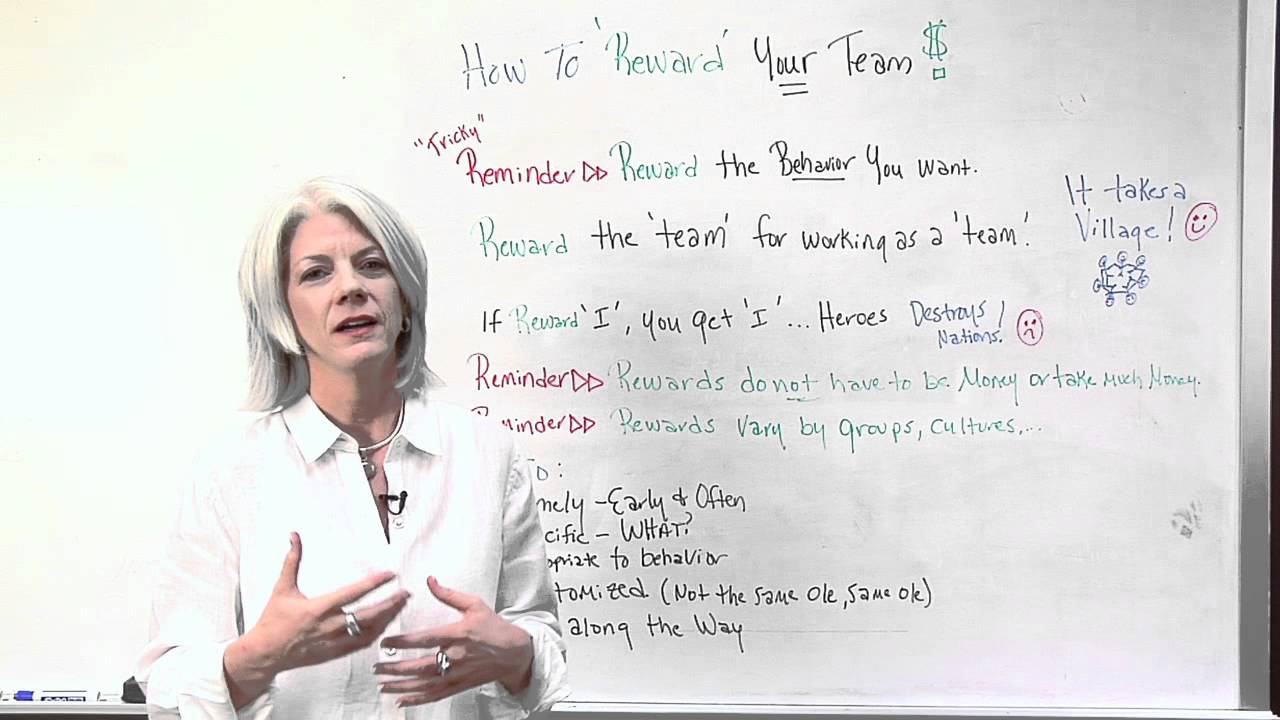 How To 'Reward' Your Team $!
"Tricky"
Reminder ▷▷ Reward the Behavior You want.
Reward the 'team' for working as a 'team'.
It takes a
Village!
If Reward 'I', you get 'I'... Heroes
Destroys
Nations.
Reminder ▷▷ Rewards do not have to be Money or take Much Money.
minder ▷▷ Rewards vary by groups, cultures,...
To:
mely - Early & Often
cific - WHAT?
opriate to behavior
tomized (Not the same Ole, same ole)
along the Way